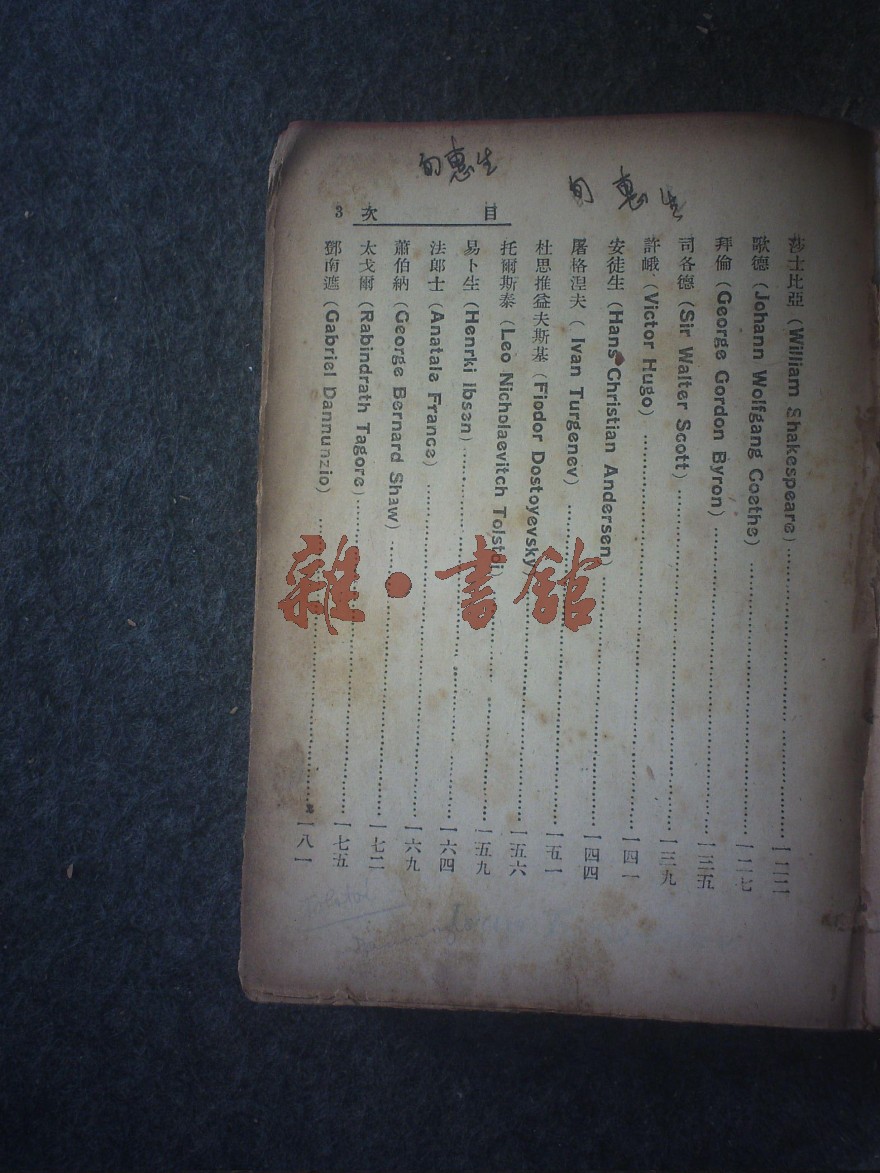 旬惠生
旬惠生
目 次 3
莎士比亞 (William Shakespeare) 一二二
歌德 (Johann Wolfgang Goethe) 一二七
拜倫 (George Gordon Byron) 一三五
司各德 (Sir Walter Scott) 一三九
許峨 (Victor Hugo) 一四一
安徒生 (Hans Christian Andersen) 一四四
屠格涅夫 (Ivan Turgenev) 一五一
杜思推益夫斯基 (Fiodor Dostoyevsky) 一五六
托爾斯泰 (Leo Nicholaevitch Tolstoi) 一五九
易卜生 (Henrki Ibsen) 一六四
法郎士 (Anatale France) 一六九
蕭伯納 (George Bernard Shaw) 一七二
太戈爾 (Rabindrath Tagore) 一七五
鄧南遮 (Gabriel Dannunzio) 一八一
雜·書館